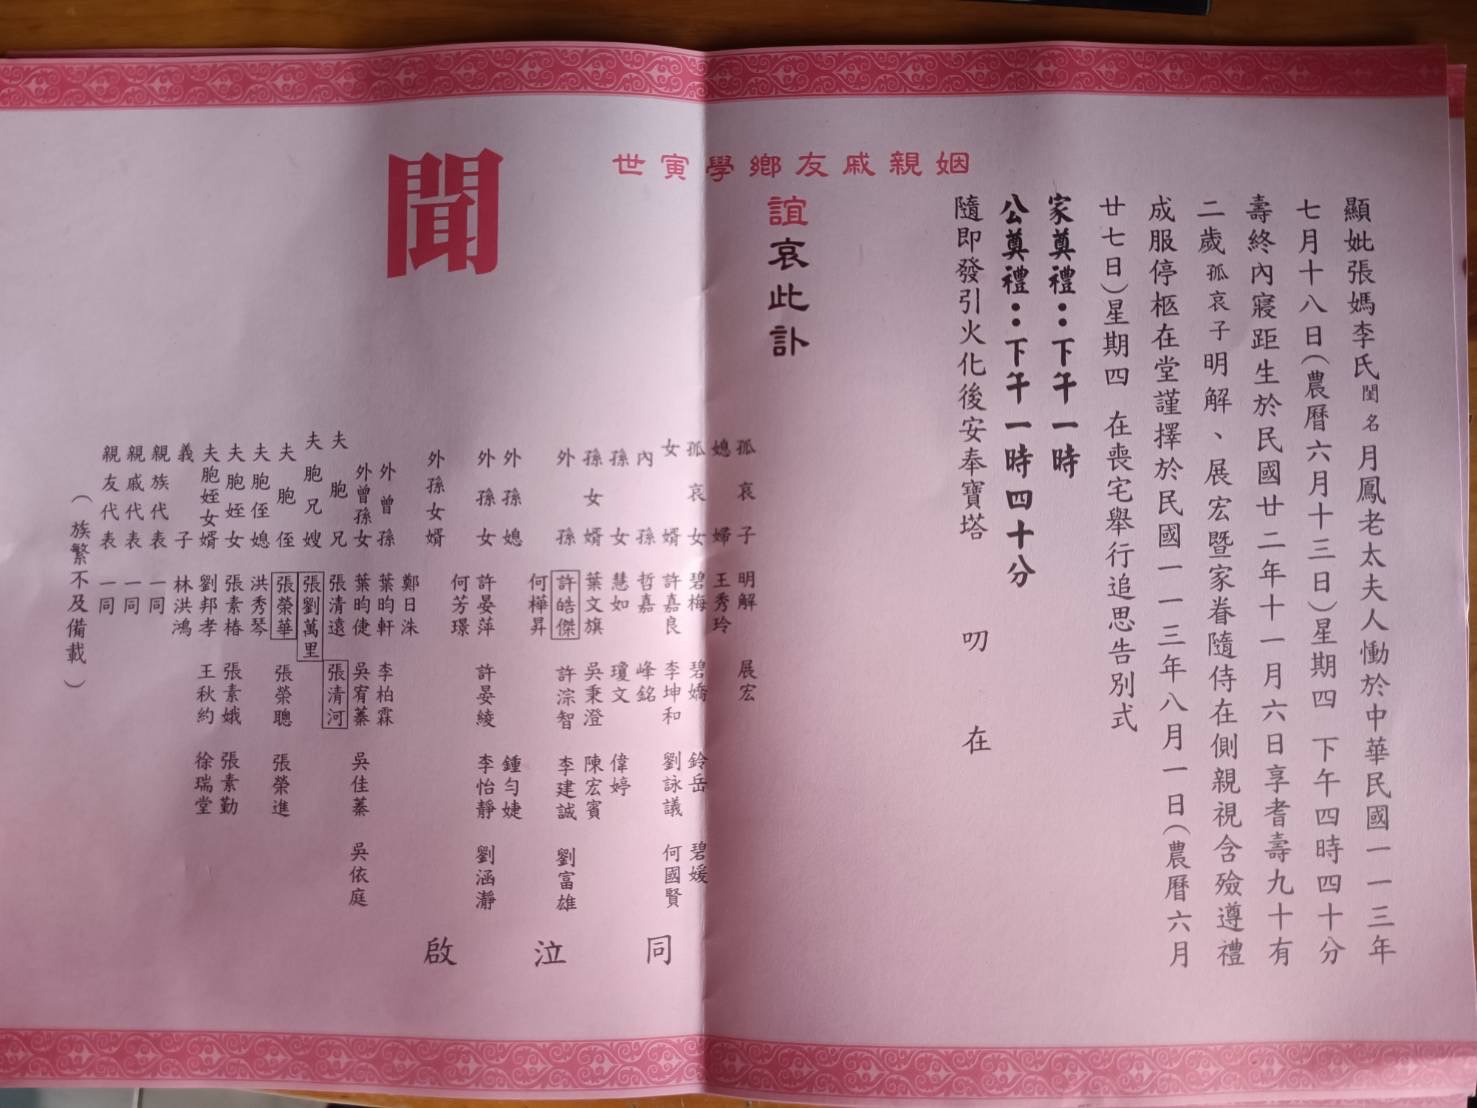 顯妣張媽李氏閨名月鳳老太夫人慟於中華民國一一三年
七月十八日(農曆六月十三日)星期四 下午四時四十分
壽終內寢距生於民國廿二年十一月六日享耆壽九十有
二歲孤哀子明解、展宏暨家眷隨侍在側親視含殮遵禮
成服停柩在堂謹擇於民國一一三年八月一日(農曆六月
廿七日)星期四 在喪宅舉行追思告別式
家奠禮：下午一時
公奠禮：下午一時四十分
隨即發引火化後安奉寶塔 叨 在
姻親戚友鄉學寅世
誼哀此訃
聞
孤哀子 明解 展宏
媳婦 王秀玲
孤哀女 碧梅 碧嬌 鈴岳 碧媛
女婿 許嘉良 李坤和 劉詠議 何國賢
內孫 哲嘉 峰銘
孫女 慧如 瓊文 偉婷
孫女婿 葉文旗 吳秉澄 陳宏賓
外孫 許皓傑 許淙智 李建誠 劉富雄
何樺昇
外孫媳 鍾勻婕
外孫女 許晏萍 許晏綾 李怡靜 劉涵瀞
何芳璟
外孫女婿 鄭日洙
外曾孫 葉昀軒 李柏霖
外曾孫女 葉昀倢 吳宥蓁 吳佳蓁 吳依庭
夫胞兄 張清遠 張清河
夫胞兄嫂 張劉萬里
夫胞侄 張榮華 張榮聰 張榮進
夫胞侄媳 洪秀琴
夫胞姪女 張素椿 張素娥 張素勤
夫胞姪女婿 劉邦孝 王秋約 徐瑞堂
義子 林洪鴻
親族代表 一同
親戚代表 一同
親友代表 一同
(族繁不及備載)
同泣啟